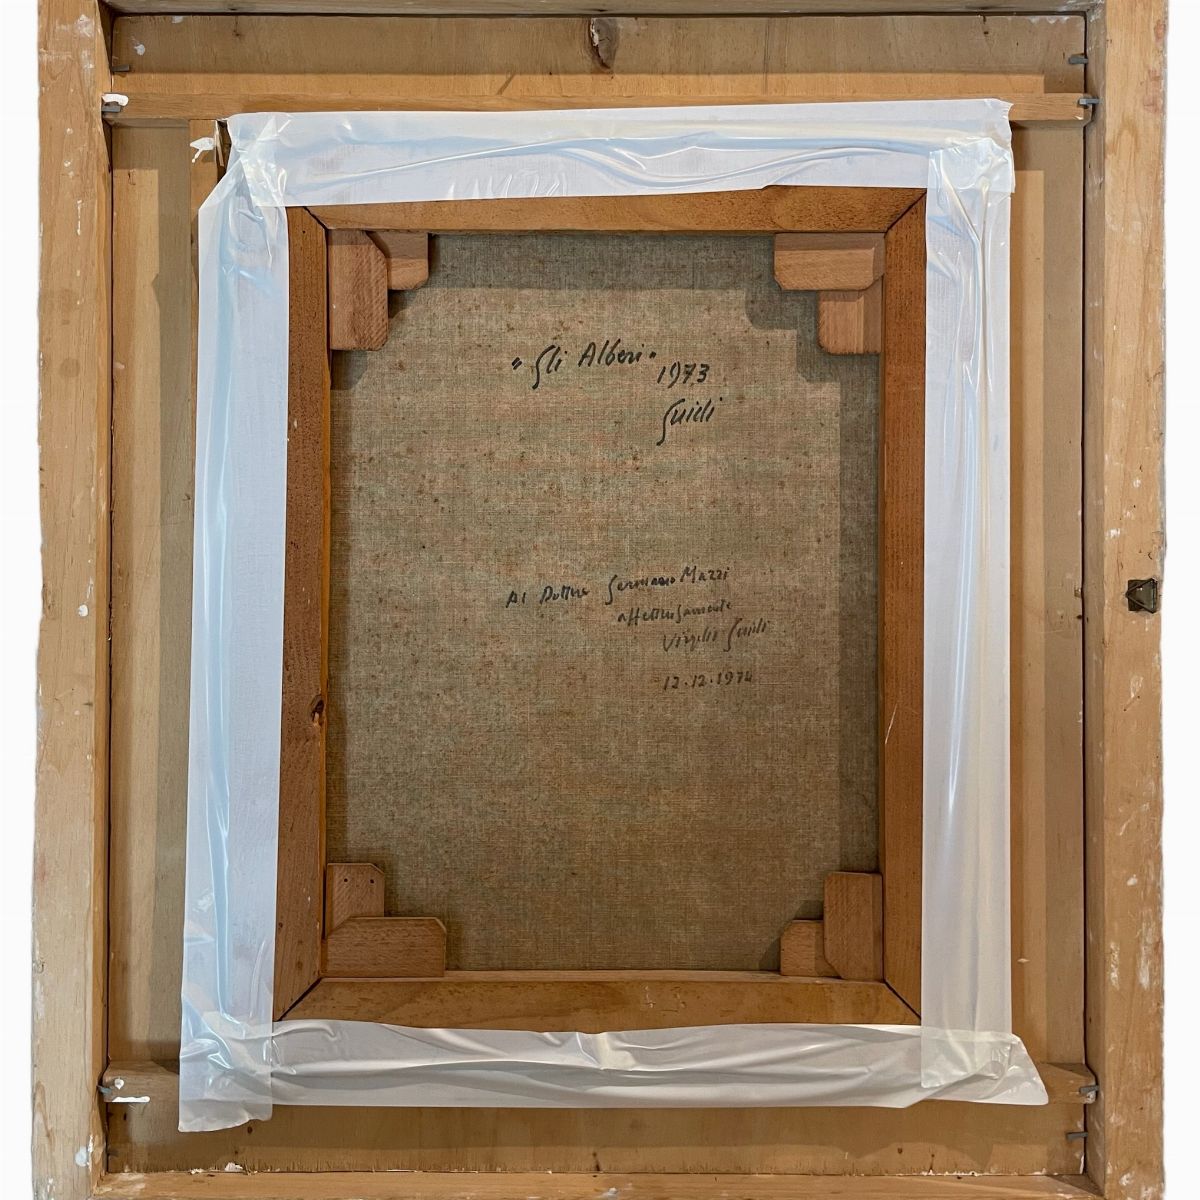 "Gli Alberi"
1973
Guidi
Al Dottore Germano Mazzi
affettuosamente
Virgilio Guidi
12.12.1974